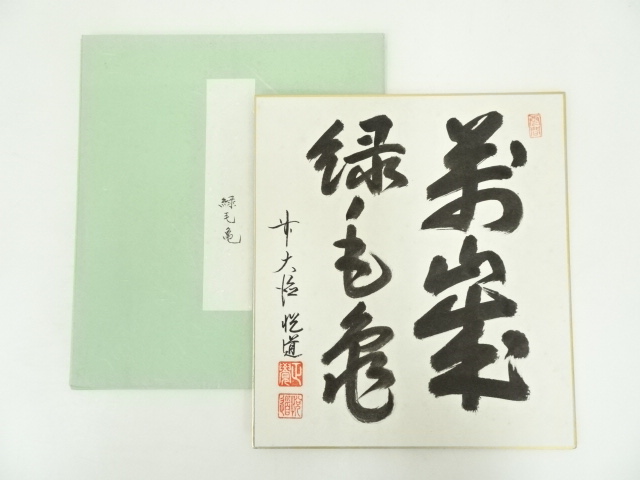 萬歳
緑毛亀
大徳 悦道
緑毛亀